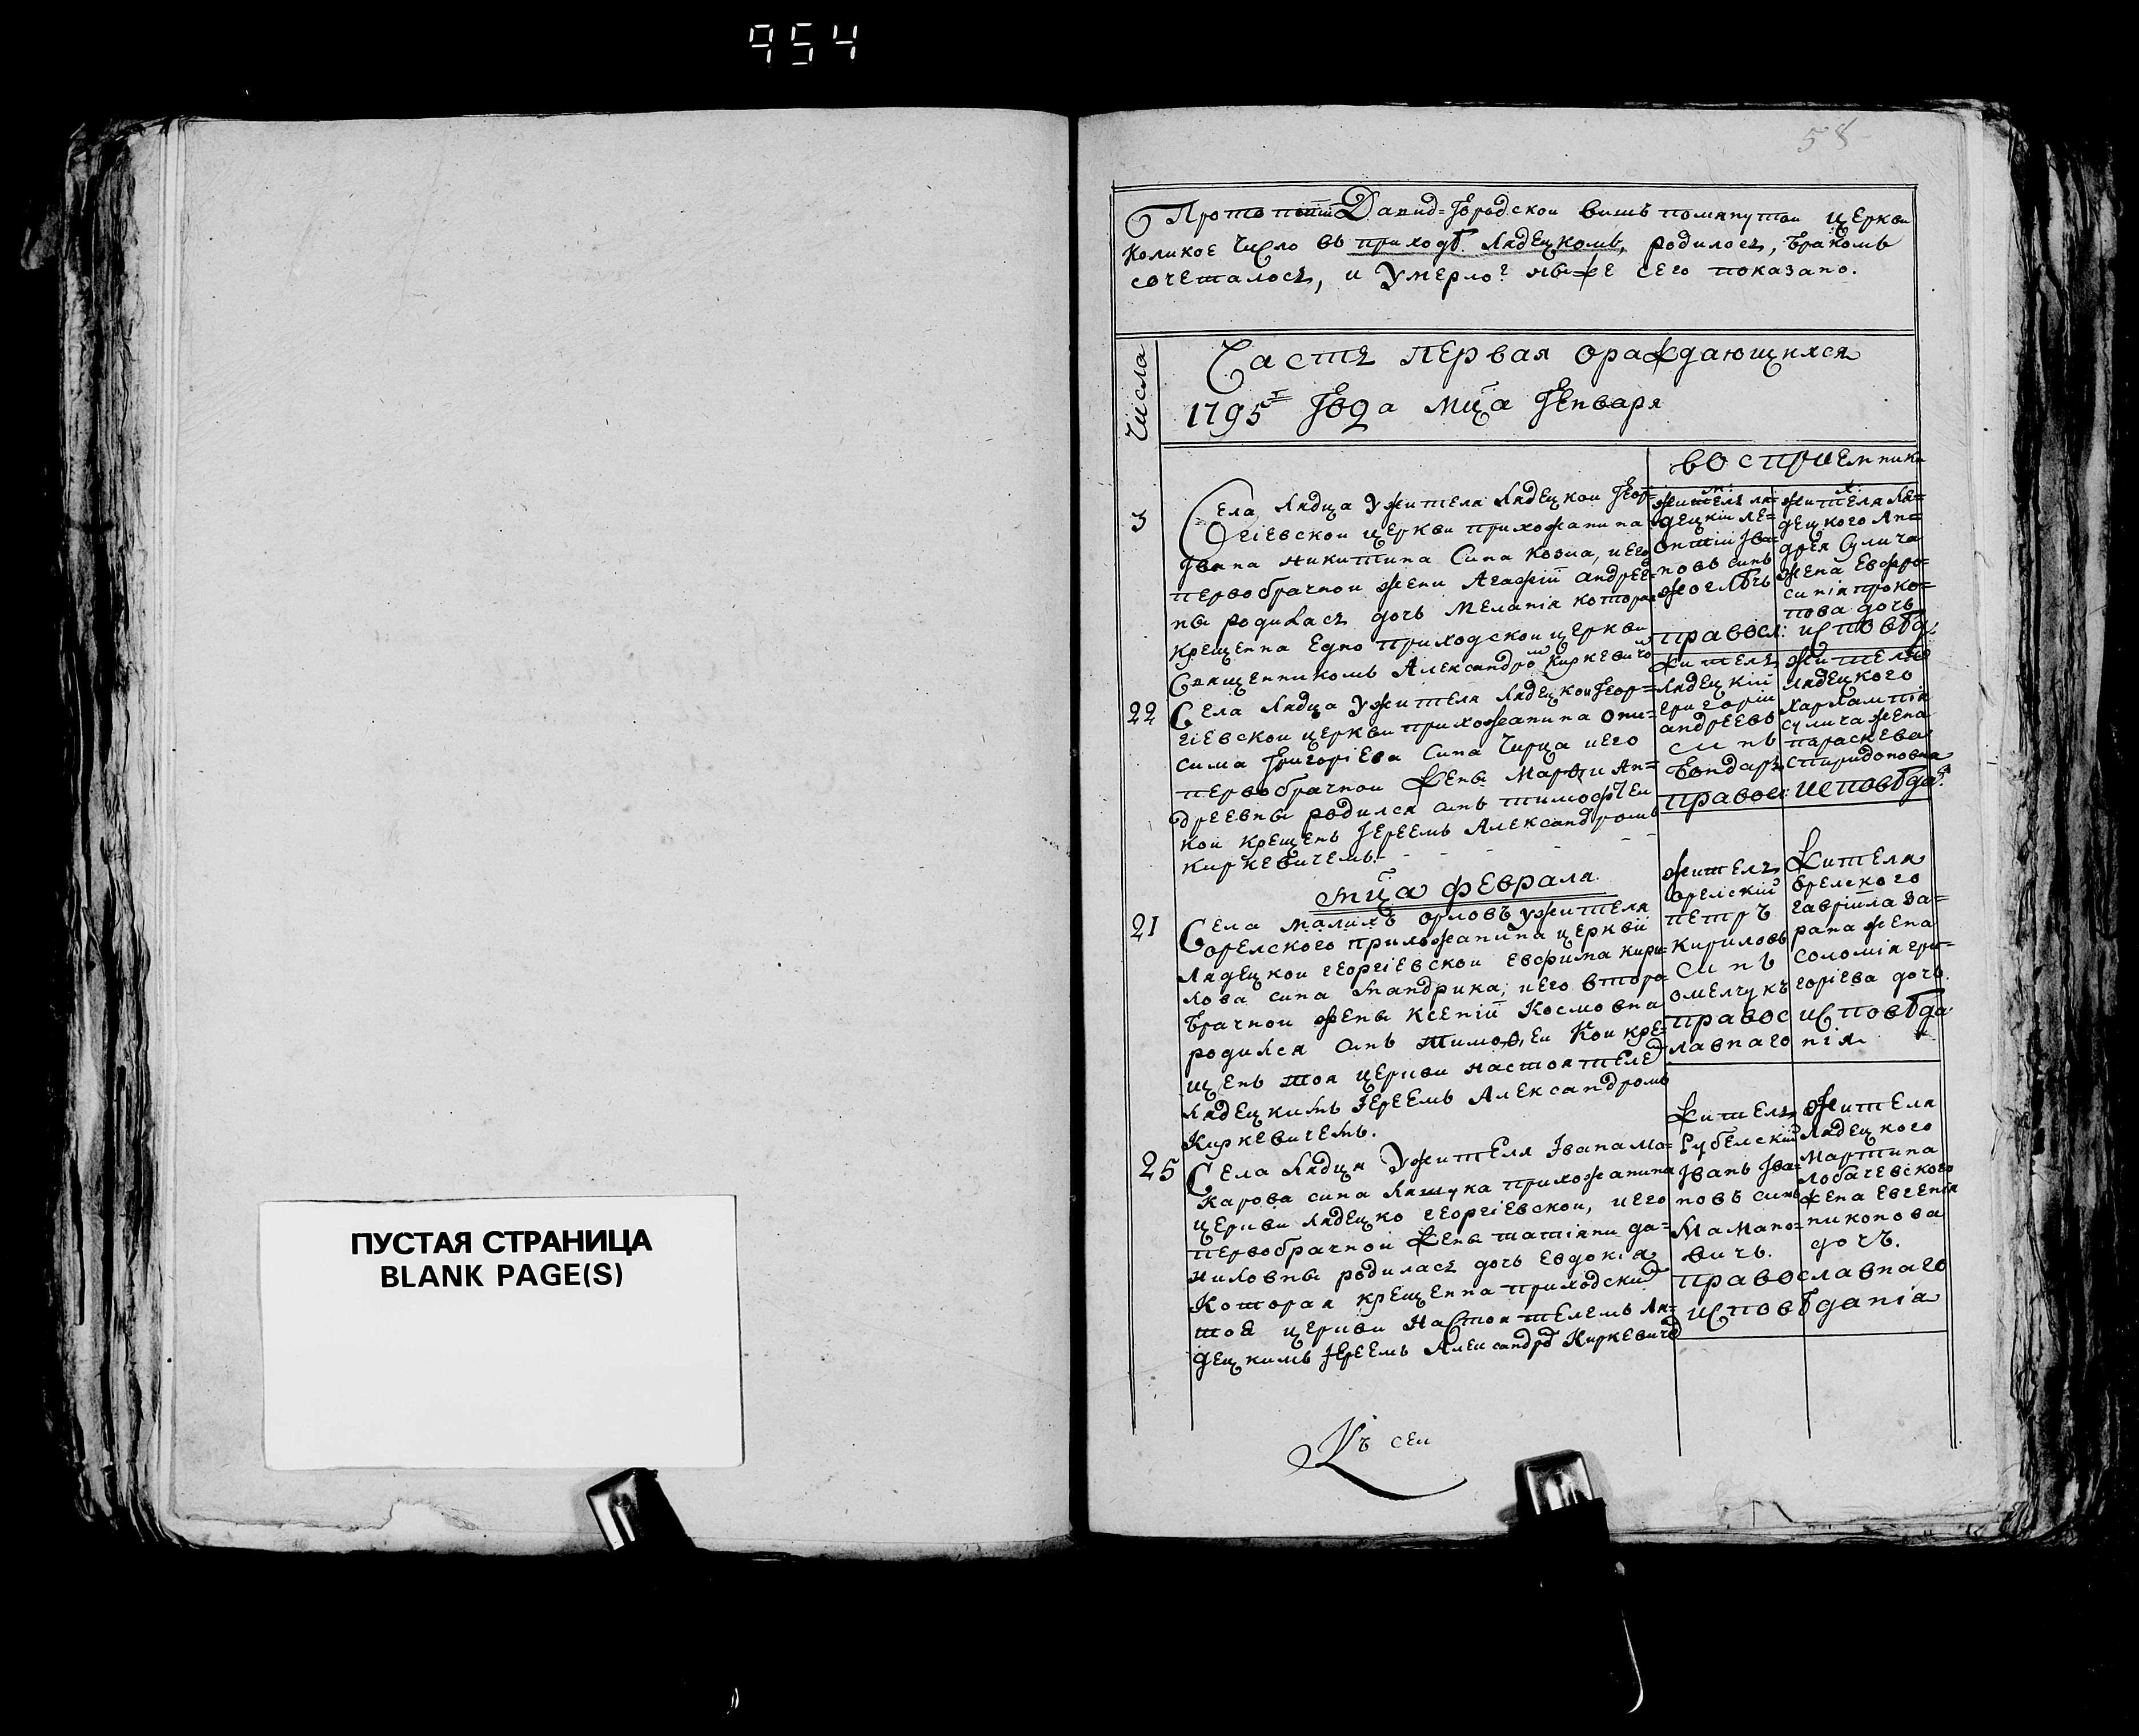 954
58
Протопіи Давид=Городской вишъ помянутой церкви
коликое число въ приходѣ Лядецкомъ, родилось, бракомъ
сочеталось, и умерло? ниже сего показано.
Числа
Часть первая ораждающихся
1795 Года мца Генваря
воспріемники
3
Села Лядца у жителя Лядецкой Геор=
гіевской церкви прихожанина
Івана Никитина сина Козла, и его
первобрачной жени Агафіи Андрее=
вны родилась дочь Меланія котора
крещенна Едно приходской церкви
Священникомъ Александро Киркевиче
житель ля=
децкій Ле=
онтій Іва=
новъ синъ
Жоглѣчь
жителя Ля=
децкого Ан=
дрея Сулича
жена Евфро=
синія проко=
пова дочь
правосл: исповѣд:
22
Села Лядца у жителя Лядецкой Геор=
гіевской церкви прихожанина Они=
сима Григоріева Сина Чирца и его
первобрачной жены Марфи Ан=
дреевны родился синъ тимофеи
кои крещенъ Іереемъ Александромъ
Киркевичемъ.
житель
Лядецкій
григорій
андреевъ
синъ
бондарь
жителя
лядецкого
харлампія
сулича жена
параскева
спиридоновна
правосл: исповѣда:
мца февраля
21
Села Малихъ орловъ у жителя
орелского прихожанина церквіи
Лядецкой георгіевской Евфима Кири=
лова сина Мандрика, и его второ
брачной жены Ксеніи Космовна
родился синъ Тимоѳеи Кои кре=
щенъ тоя церкви настоятеле
Лядецкимъ Іереемъ Александромъ
Киркевичемъ.
житель
орелскій
петръ
Кириловъ
синъ
омелчукъ
жителя
орелского
гавріила за=
рана жена
соломія гри=
горіева дочь.
правос исповѣда
лавнаго нія
25
Села Лядця у жителя Івана Ма=
карова сина Ляшука прихожанина
церкви лядецко георгіевской, и его
первобрачной жены татіяни да=
ниловны родилась дочь Евдокія
Которая крещенна приходски
тоя церкви настоятелемъ Ля=
децкимъ Іереемъ Александро Киркевиче
житель
рубелскій
Іванъ Іва=
новъ синъ
Мамано=
вичъ.
жителя
Лядецкого
Мартина
Лобачевского
жена Евгенія
никонова
дочъ.
православнаго
исповѣданія
Къ сеи
ПУСТАЯ СТРАНИЦА
BLANK PAGE(S)